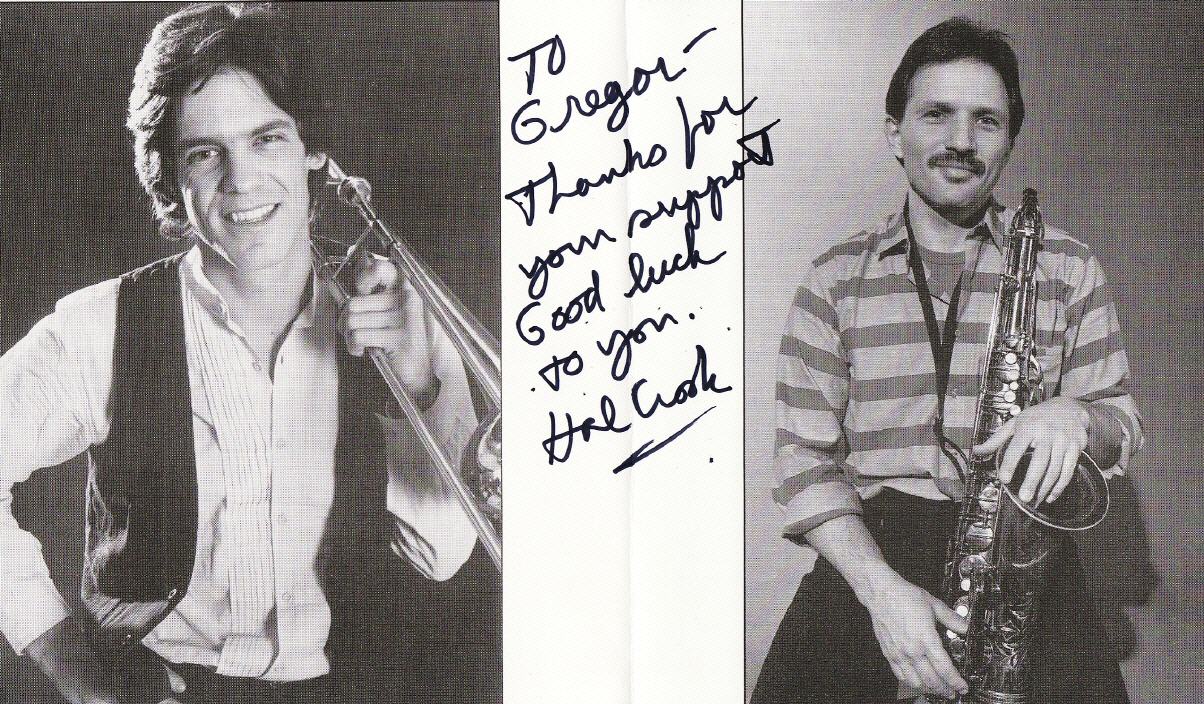 To
Gregor-
Thanks for
your support
Good luck
to you.
Hal Crook